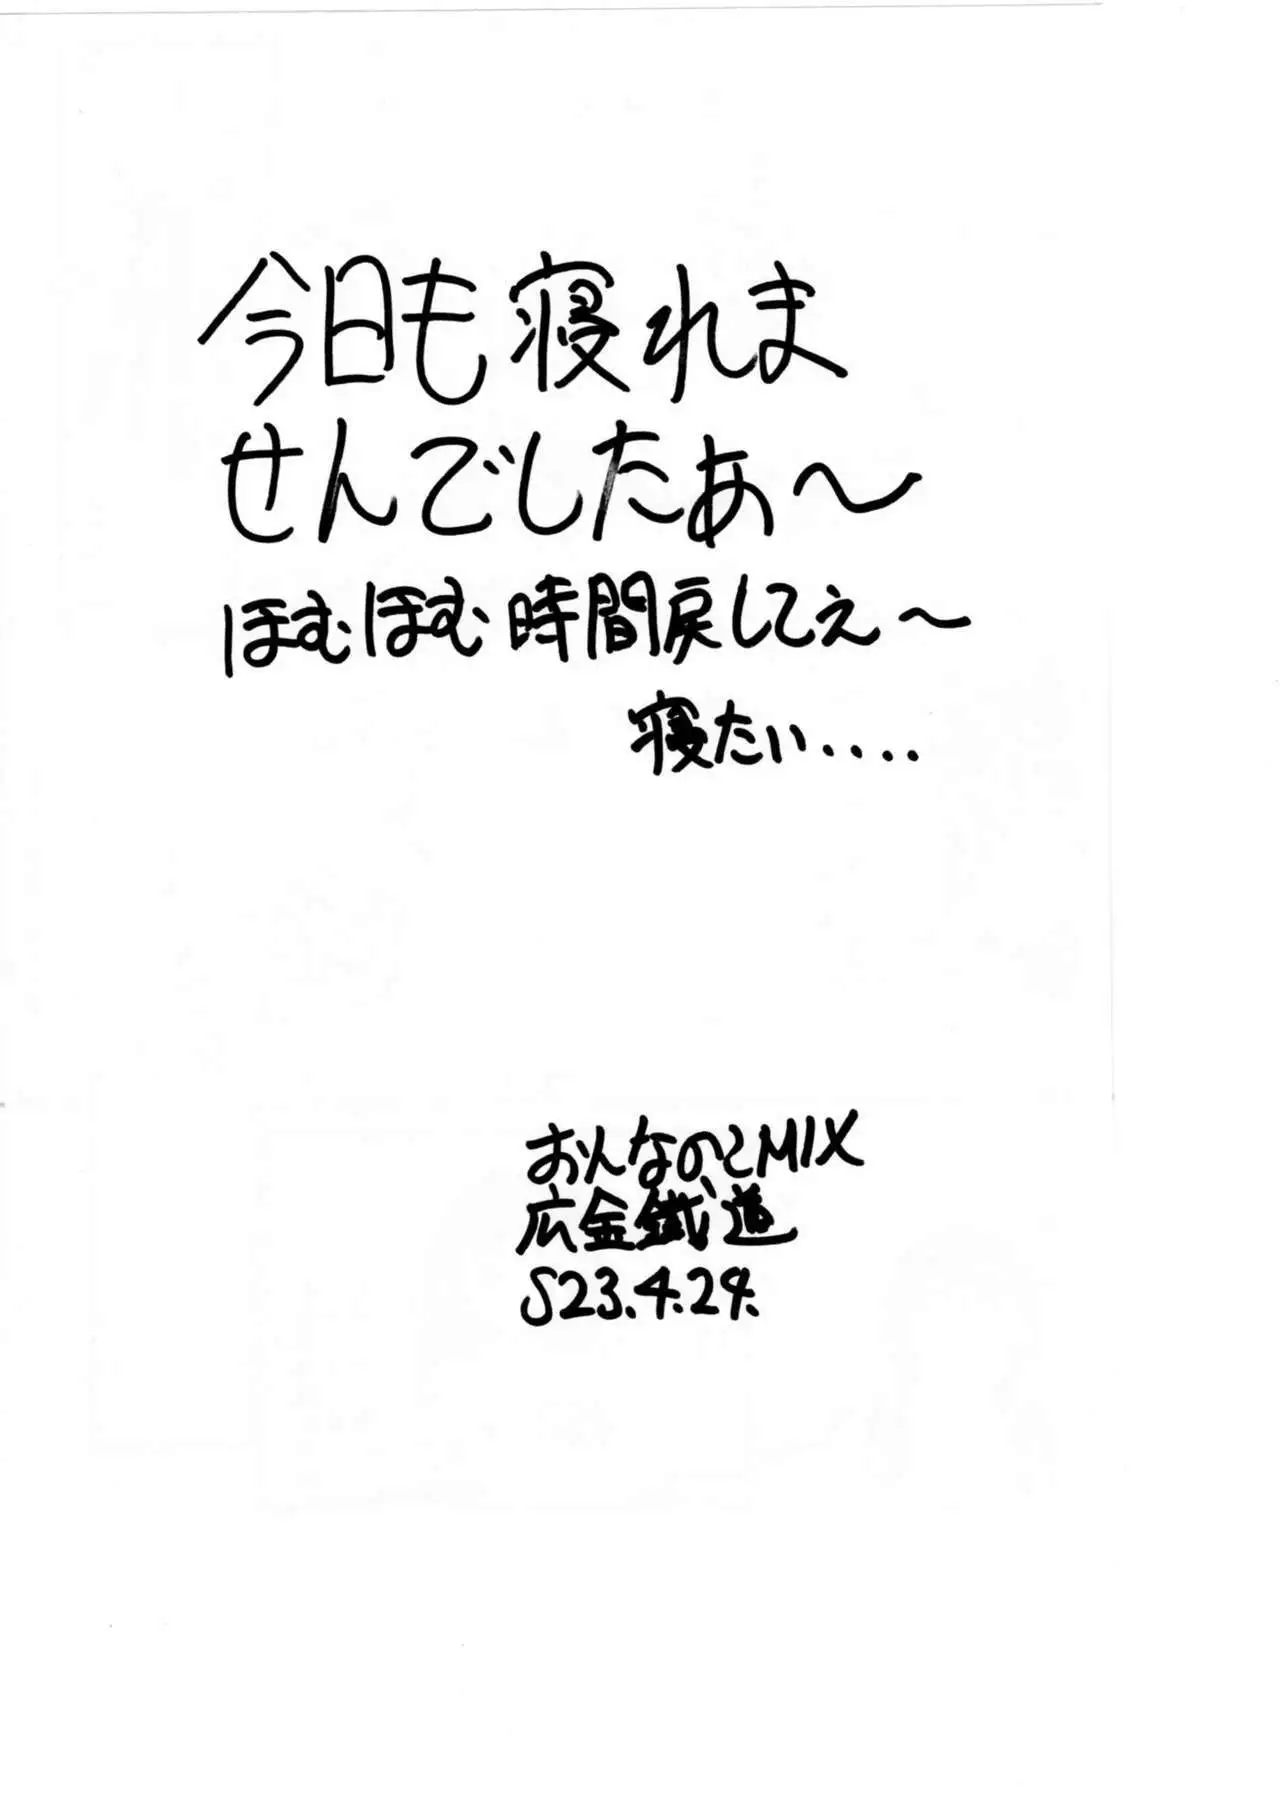 今日も寝れま
せんでしたぁ～
ほむほむ時間戻してぇ～
寝たい....
おんなのこMIX
広金鐵道
S23.4.24.